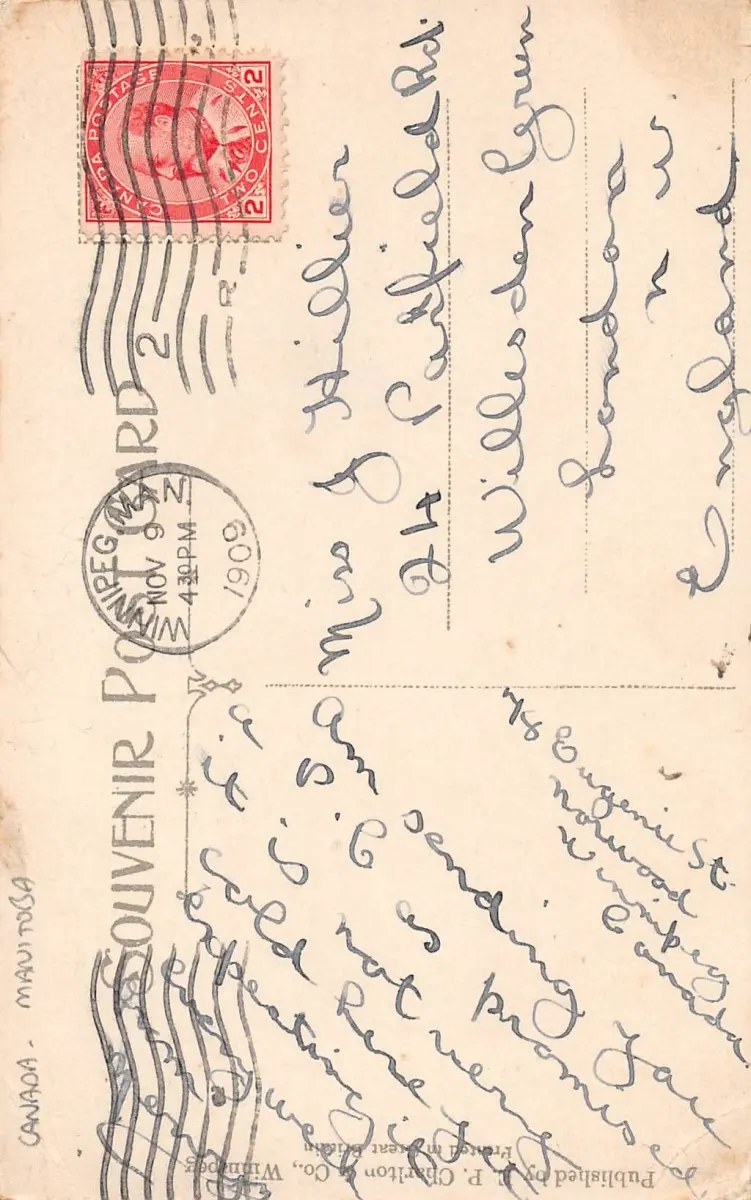 CANADA - MANITOBA
SOUVENIR POST CARD
CANADA POSTAGE
TWO CENTS
2 2
WINNIPEG, MAN
NOV 9
430 PM
1909
2
R
Miss J Hillier
24 Parkfield Rd.
Willesden Green
London
N W.
England
Eugenie St
Norwood
Winnipeg
Canada
Am sending you
a P.C as promised
it is not very
cold here yet
expecting
every
Published by E. P. Charlton & Co., Winnipeg
Printed in Great Britain